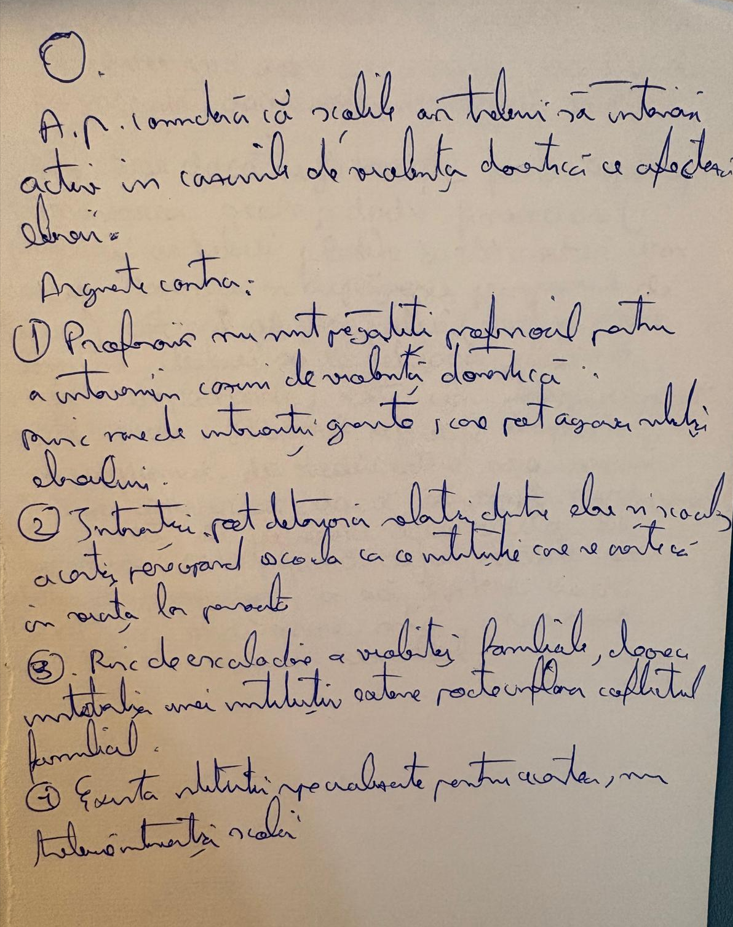 O.
A.p. consideră că școlile ar trebui să intervină
activ în cazurile de violență domestică ce afectează
elevii.
Argumente contra:
① Profesorii nu sunt pregătiți profesional pentru
a interveni în cazuri de violență domestică
risc de intervenții greșite, care pot agrava
elevului.
② Intervenția pot deteriora relația dintre elev și școală,
aceștia percepând școala ca o instituție care se amestecă
în viața lor personală
③. Risc de escaladare a violenței familiale, deoarece
unei instituții externe poate inflama conflictul
familial.
④ Există instituții specializate pentru acestea, nu
trebuie intervenția școlii